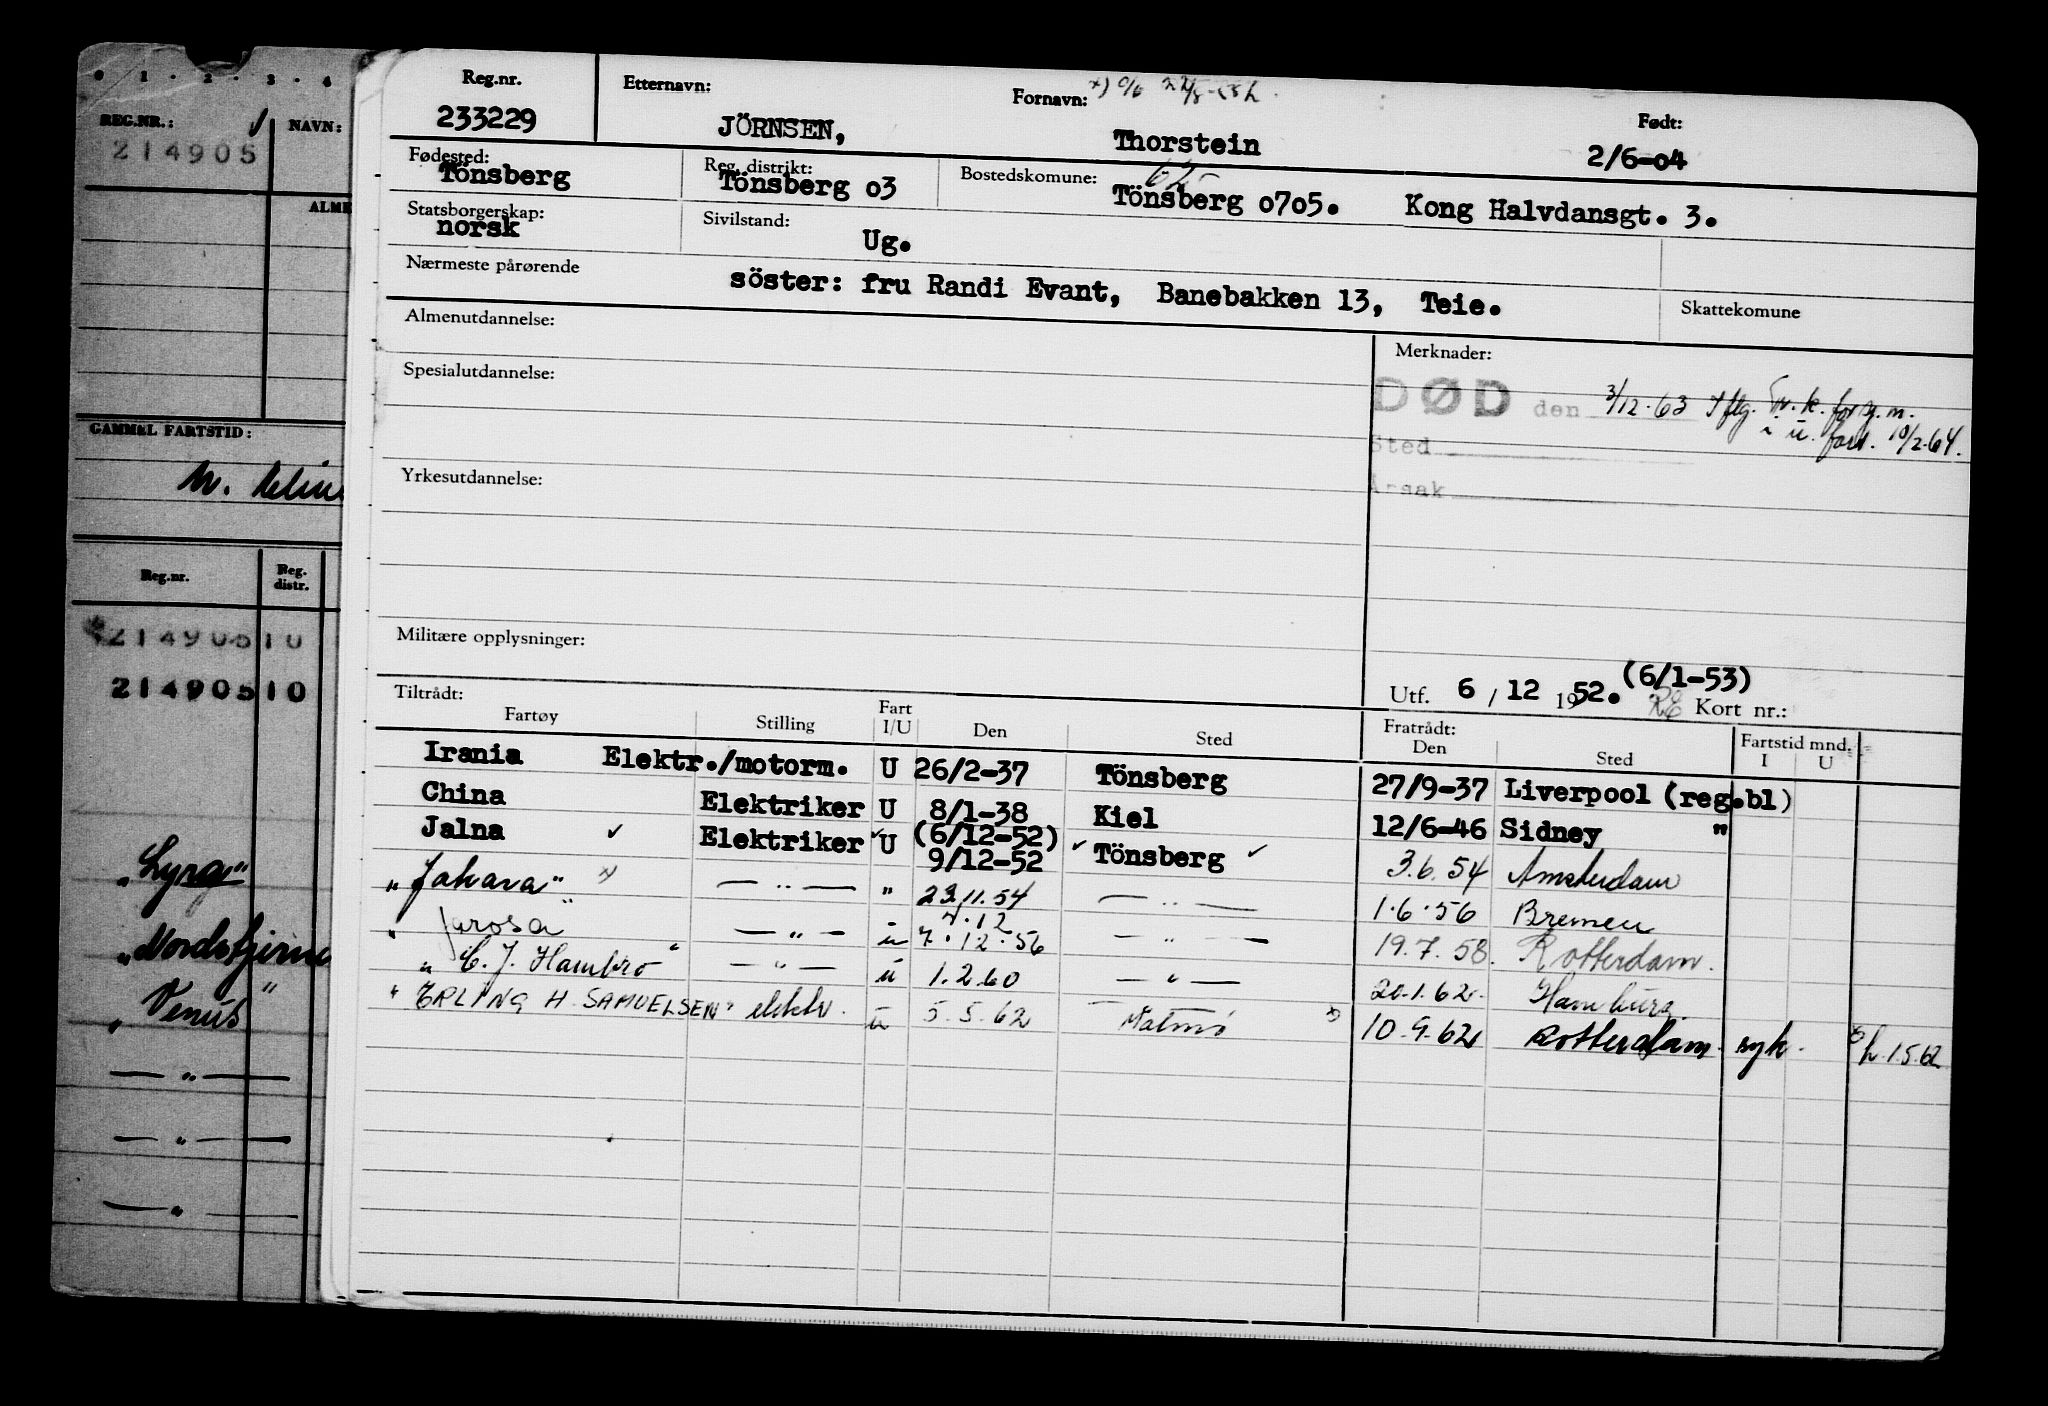 0 1 · 2 · 3 · 4
REG.NR.: NAVN:
214905
ALME
GAMMEL FARTSTID:
Reg.nr. Reg. distr.
214905 10
214905 10
„Lyra"
„Nordstjerne
„Venus"
— „ —
— „ —
— „ —
Reg.nr. Etternavn: Fornavn: Født:
233229 JÖRNSEN, Thorstein 2/6-04
Fødested: Reg. distrikt: Bostedskommune: 62
Tönsberg Tönsberg o3 Tönsberg o7o5. Kong Halvdansgt. 3.
Statsborgerskap: Sivilstand:
norsk Ug.
Nærmeste pårørende
söster: fru Randi Evant, Banebakken 13, Teie.
Skattekomune
Almenutdannelse: Merknader:
Spesialutdannelse:
DØD den 3/12.63 Iflg. Tr.k. for sj.m.
i u. fart. 10/2.64.
Sted
Årsak
Yrkesutdannelse:
Militære opplysninger:
Utf. 6 / 12 1952. (6/1-53) Kort nr.:
Tiltrådt: Fratrådt:
Fartøy Stilling Fart I/U Den Sted Den Sted Fartstid mnd. I U
Irania Elektr./motorm. U 26/2-37 Tönsberg 27/9-37 Liverpool (reg.bl)
China Elektriker U 8/1-38 Kiel 12/6-46 Sidney "
Jalna ✓ Elektriker ✓ U (6/12-52) 9/12-52 ✓ Tönsberg ✓ 3.6.54 Amsterdam
„Jahara" x) — „ — " 23.11.54 — „ — 1.6.56 Bremen
„Jarosa" — „ — u 7.12 7.12.56 — „ — 19.7.58. Rotterdam.
„C. J. Hambro" — „ — u 1.2.60 — „ — 20.1.62. Hamburg.
"ERLING H. SAMUELSEN" elektr. u 5.5.62 Malmö x) 10.9.62 Rotterdam. syk. x) h.1.5.62